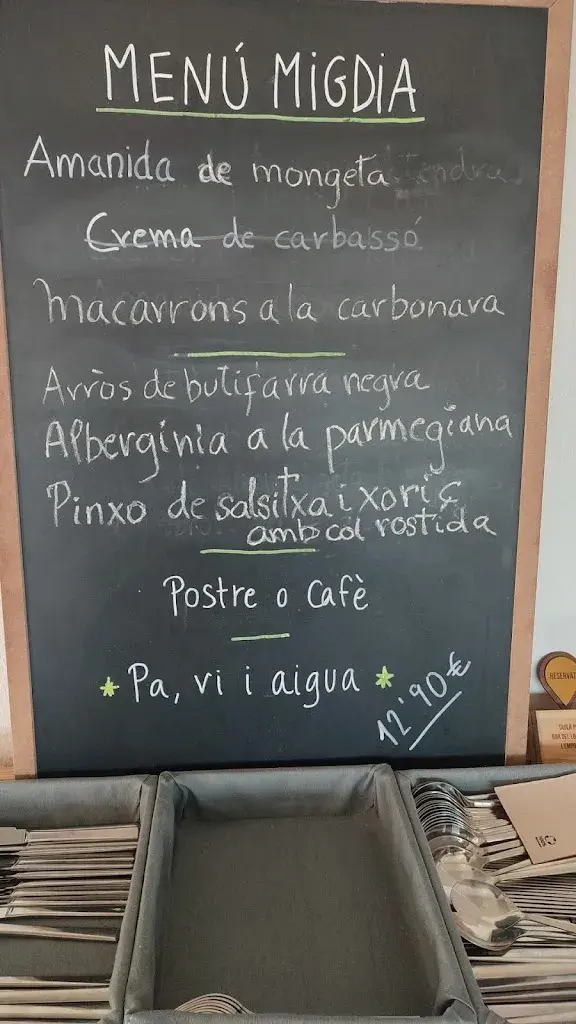 MENÚ MIGDIA
Amanida de mongeta tendra
Crema de carbassó
Macarrons a la carbonara
Arròs de butifarra negra
Albergínia a la parmegiana
Pinxo de salsitxa i xoriç
amb col rostida
Postre o Cafè
* Pa, vi i aigua *
12'90€